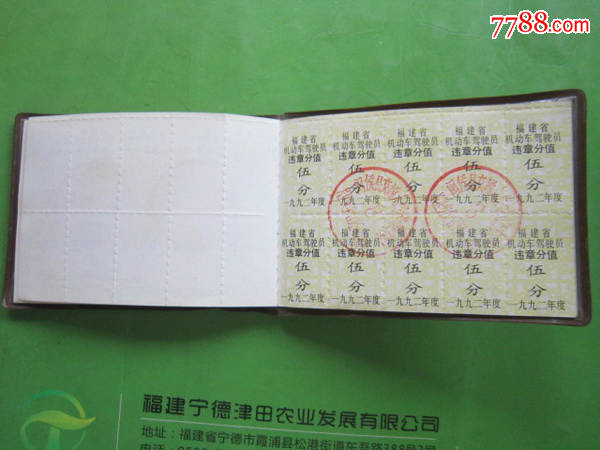 7788.com
福建省 福建省 福建省 福建省 福建省
机动车驾驶员 机动车驾驶员 机动车驾驶员 机动车驾驶员 机动车驾驶员
违章分值 违章分值 违章分值 违章分值 违章分值
伍 伍 伍 伍 伍
分 分 分 分 分
一九九二年度 一九九二年度 一九九二年度 一九九二年度 一九九二年度
福建省 福建省 福建省 福建省 福建省
机动车驾驶员 机动车驾驶员 机动车驾驶员 机动车驾驶员 机动车驾驶员
违章分值 违章分值 违章分值 违章分值 违章分值
伍 伍 伍 伍 伍
分 分 分 分 分
一九九二年度 一九九二年度 一九九二年度 一九九二年度 一九九二年度
福建宁德津田农业发展有限公司
地址：福建省宁德市霞浦县松港街道东吾路388号2号
电话：